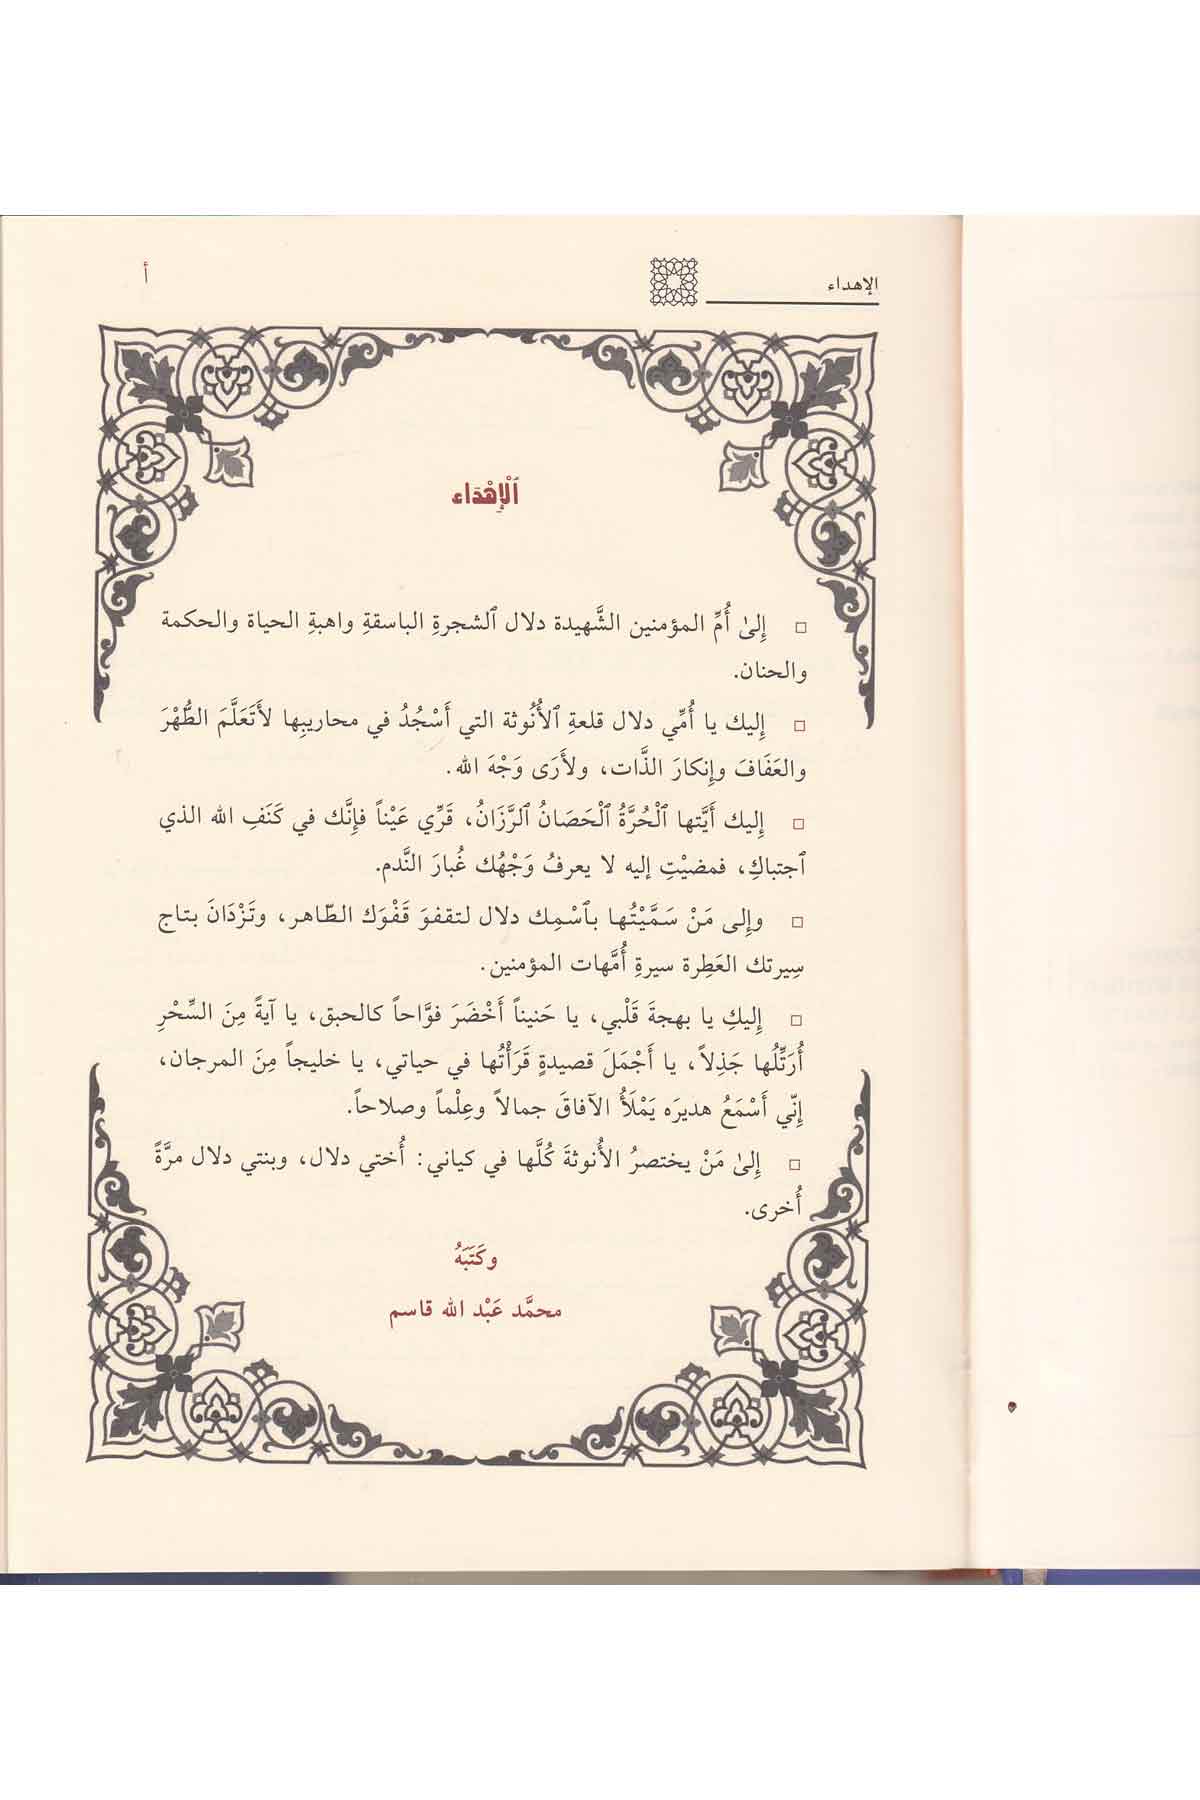 الإهداء
أ
ٱلْإِهْدَاء
□ إِلىٰ أُمِّ المؤمنين الشَّهيدة دلال ٱلشجرةِ الباسقةِ واهبةِ الحياة والحكمة
والحنان.
□ إِليك يا أُمِّي دلال قلعةِ ٱلأُنُوثة التي أَسْجُدُ في محاريبِها لأَتَعَلَّمَ الطُّهْرَ
والعَفَافَ وإِنكارَ الذَّات، ولأَرَى وَجْهَ الله.
□ إِليك أَيَّتها ٱلْحُرَّةُ ٱلْحَصَانُ ٱلرَّزَانُ، قَرِّي عَيْناً فإِنَّك في كَنَفِ الله الذي
ٱجتباكِ، فمضيْتِ إليه لا يعرفُ وَجْهُك غُبارَ النَّدم.
□ وإِلى مَنْ سَمَّيْتُها بٱسْمِك دلال لتقفوَ قَفْوَك الطّاهر، وتَزْدَانَ بتاج
سِيرتك العَطِرة سيرةِ أُمَّهات المؤمنين.
□ إِليكِ يا بهجةَ قَلْبي، يا حَنيناً أَخْضَرَ فوَّاحاً كالحبق، يا آيةً مِنَ السِّحْرِ
أُرَتِّلُها جَذِلاً، يا أَجْمَلَ قصيدةٍ قَرَأْتُها في حياتي، يا خليجاً مِنَ المرجان،
إِنّي أَسْمَعُ هديرَه يَمْلَأُ الآفاقَ جمالاً وعِلْماً وصلاحاً.
□ إِلىٰ مَنْ يختصرُ الأُنوثةَ كُلَّها في كياني: أُختي دلال، وبنتي دلال مرَّةً
أُخرى.
وكَتَبَهُ
محمَّد عَبْد الله قاسم